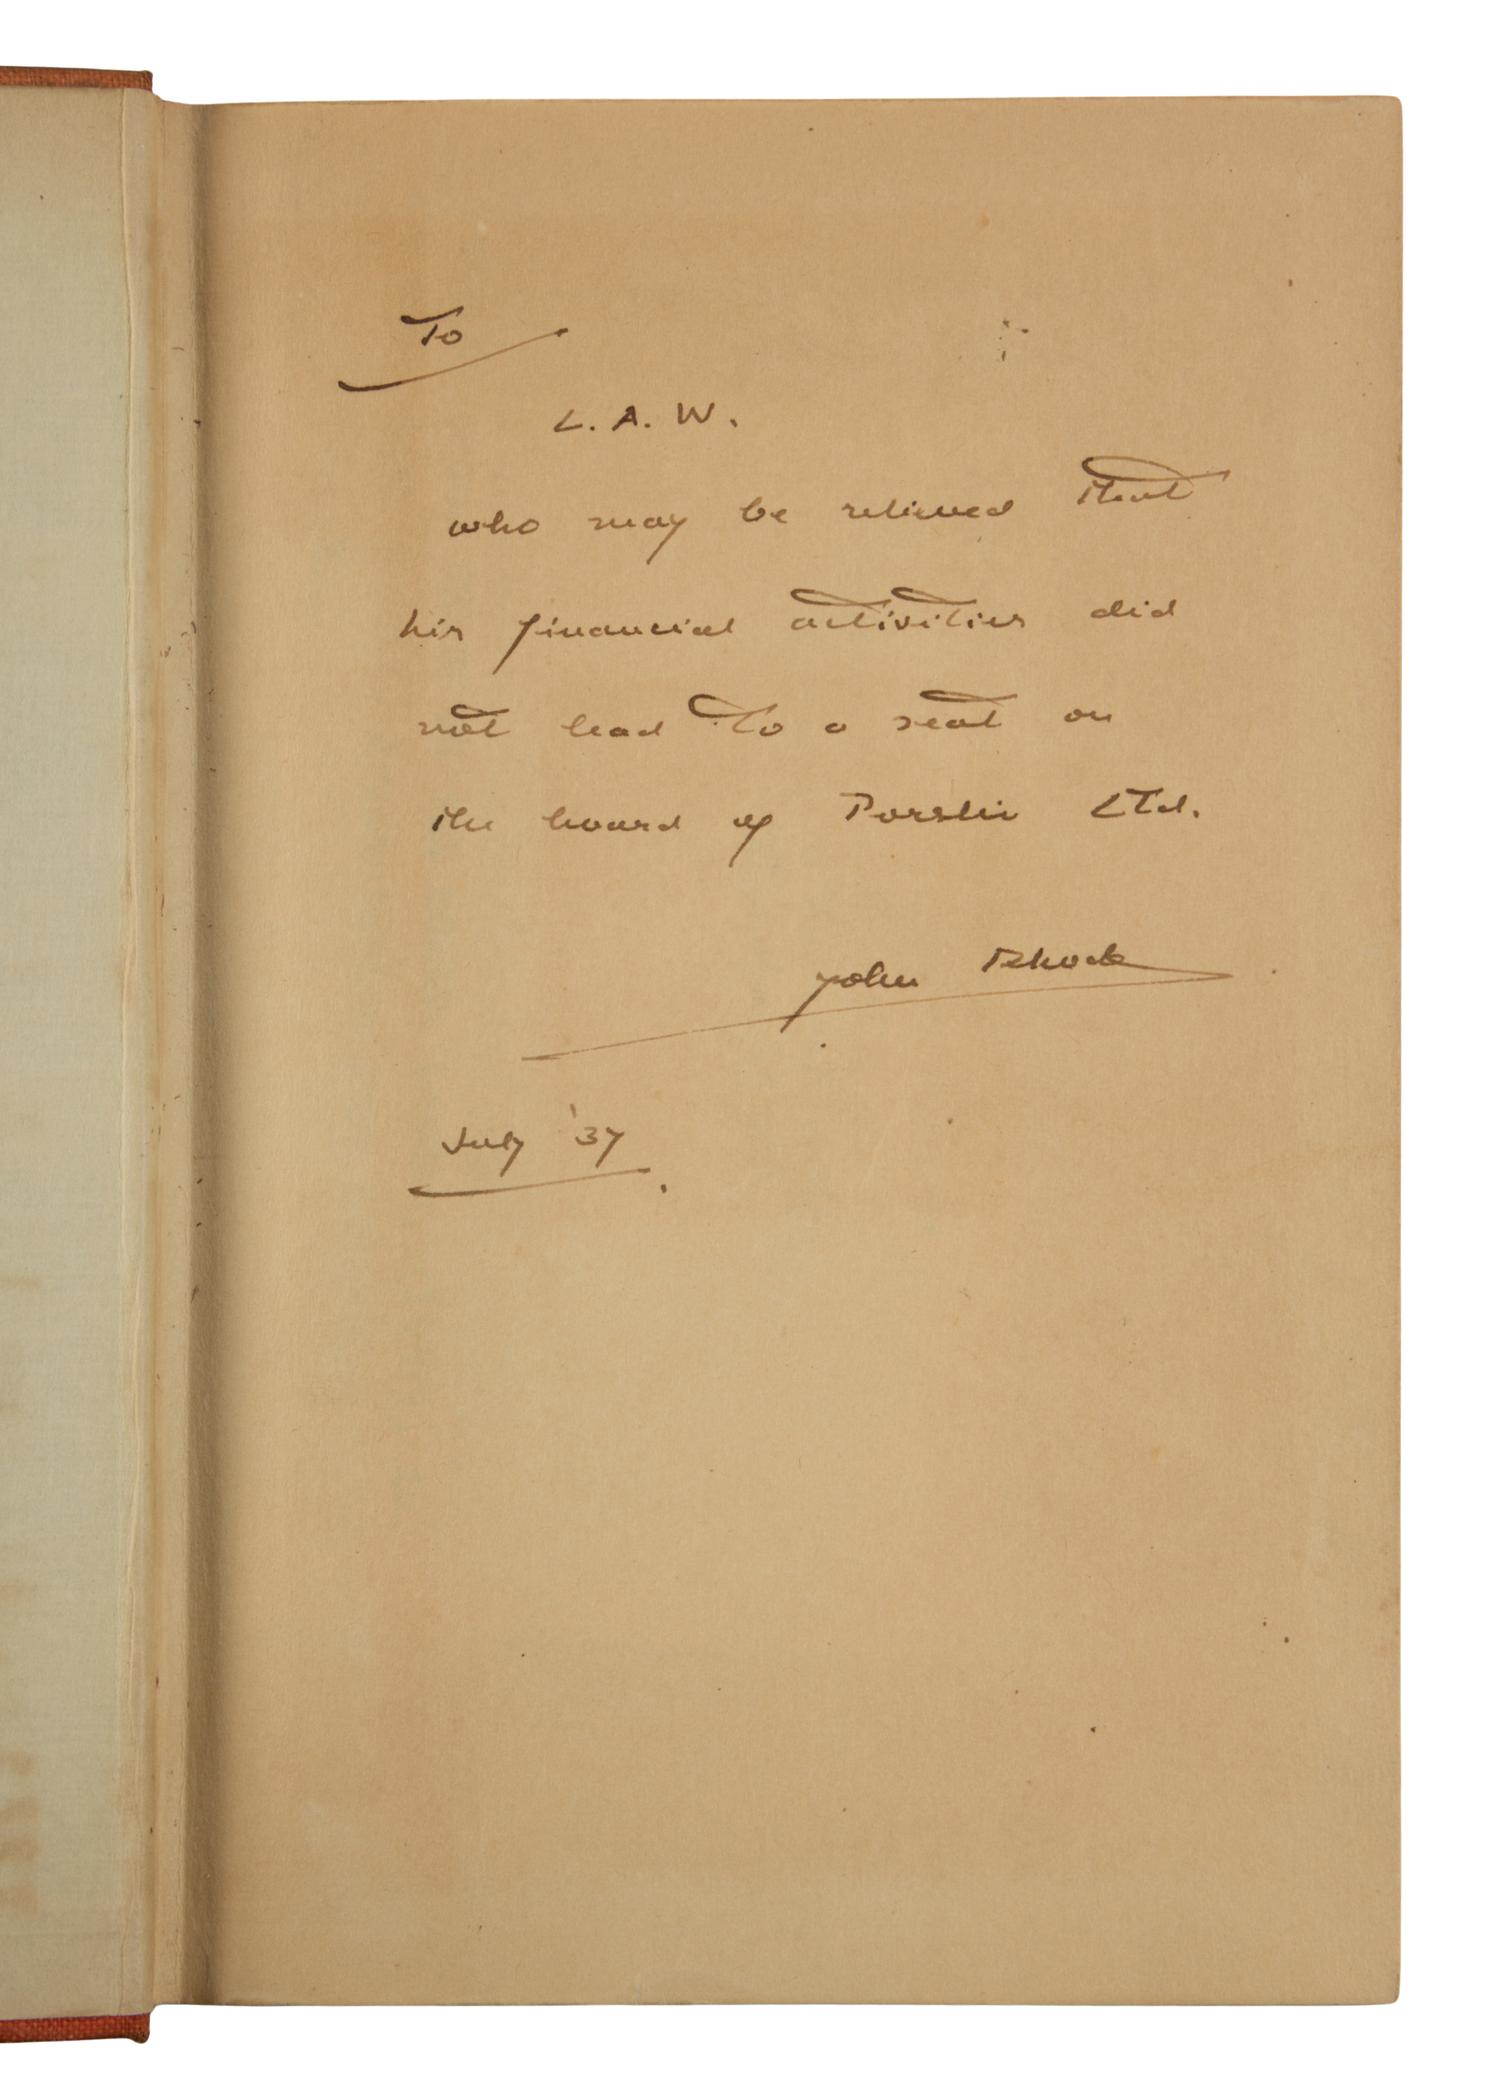 To
L. A. W.
who may be relieved that
his financial activities did
not lead to a seat on
the board of Porslin Ltd.
John Rhode
July '37.